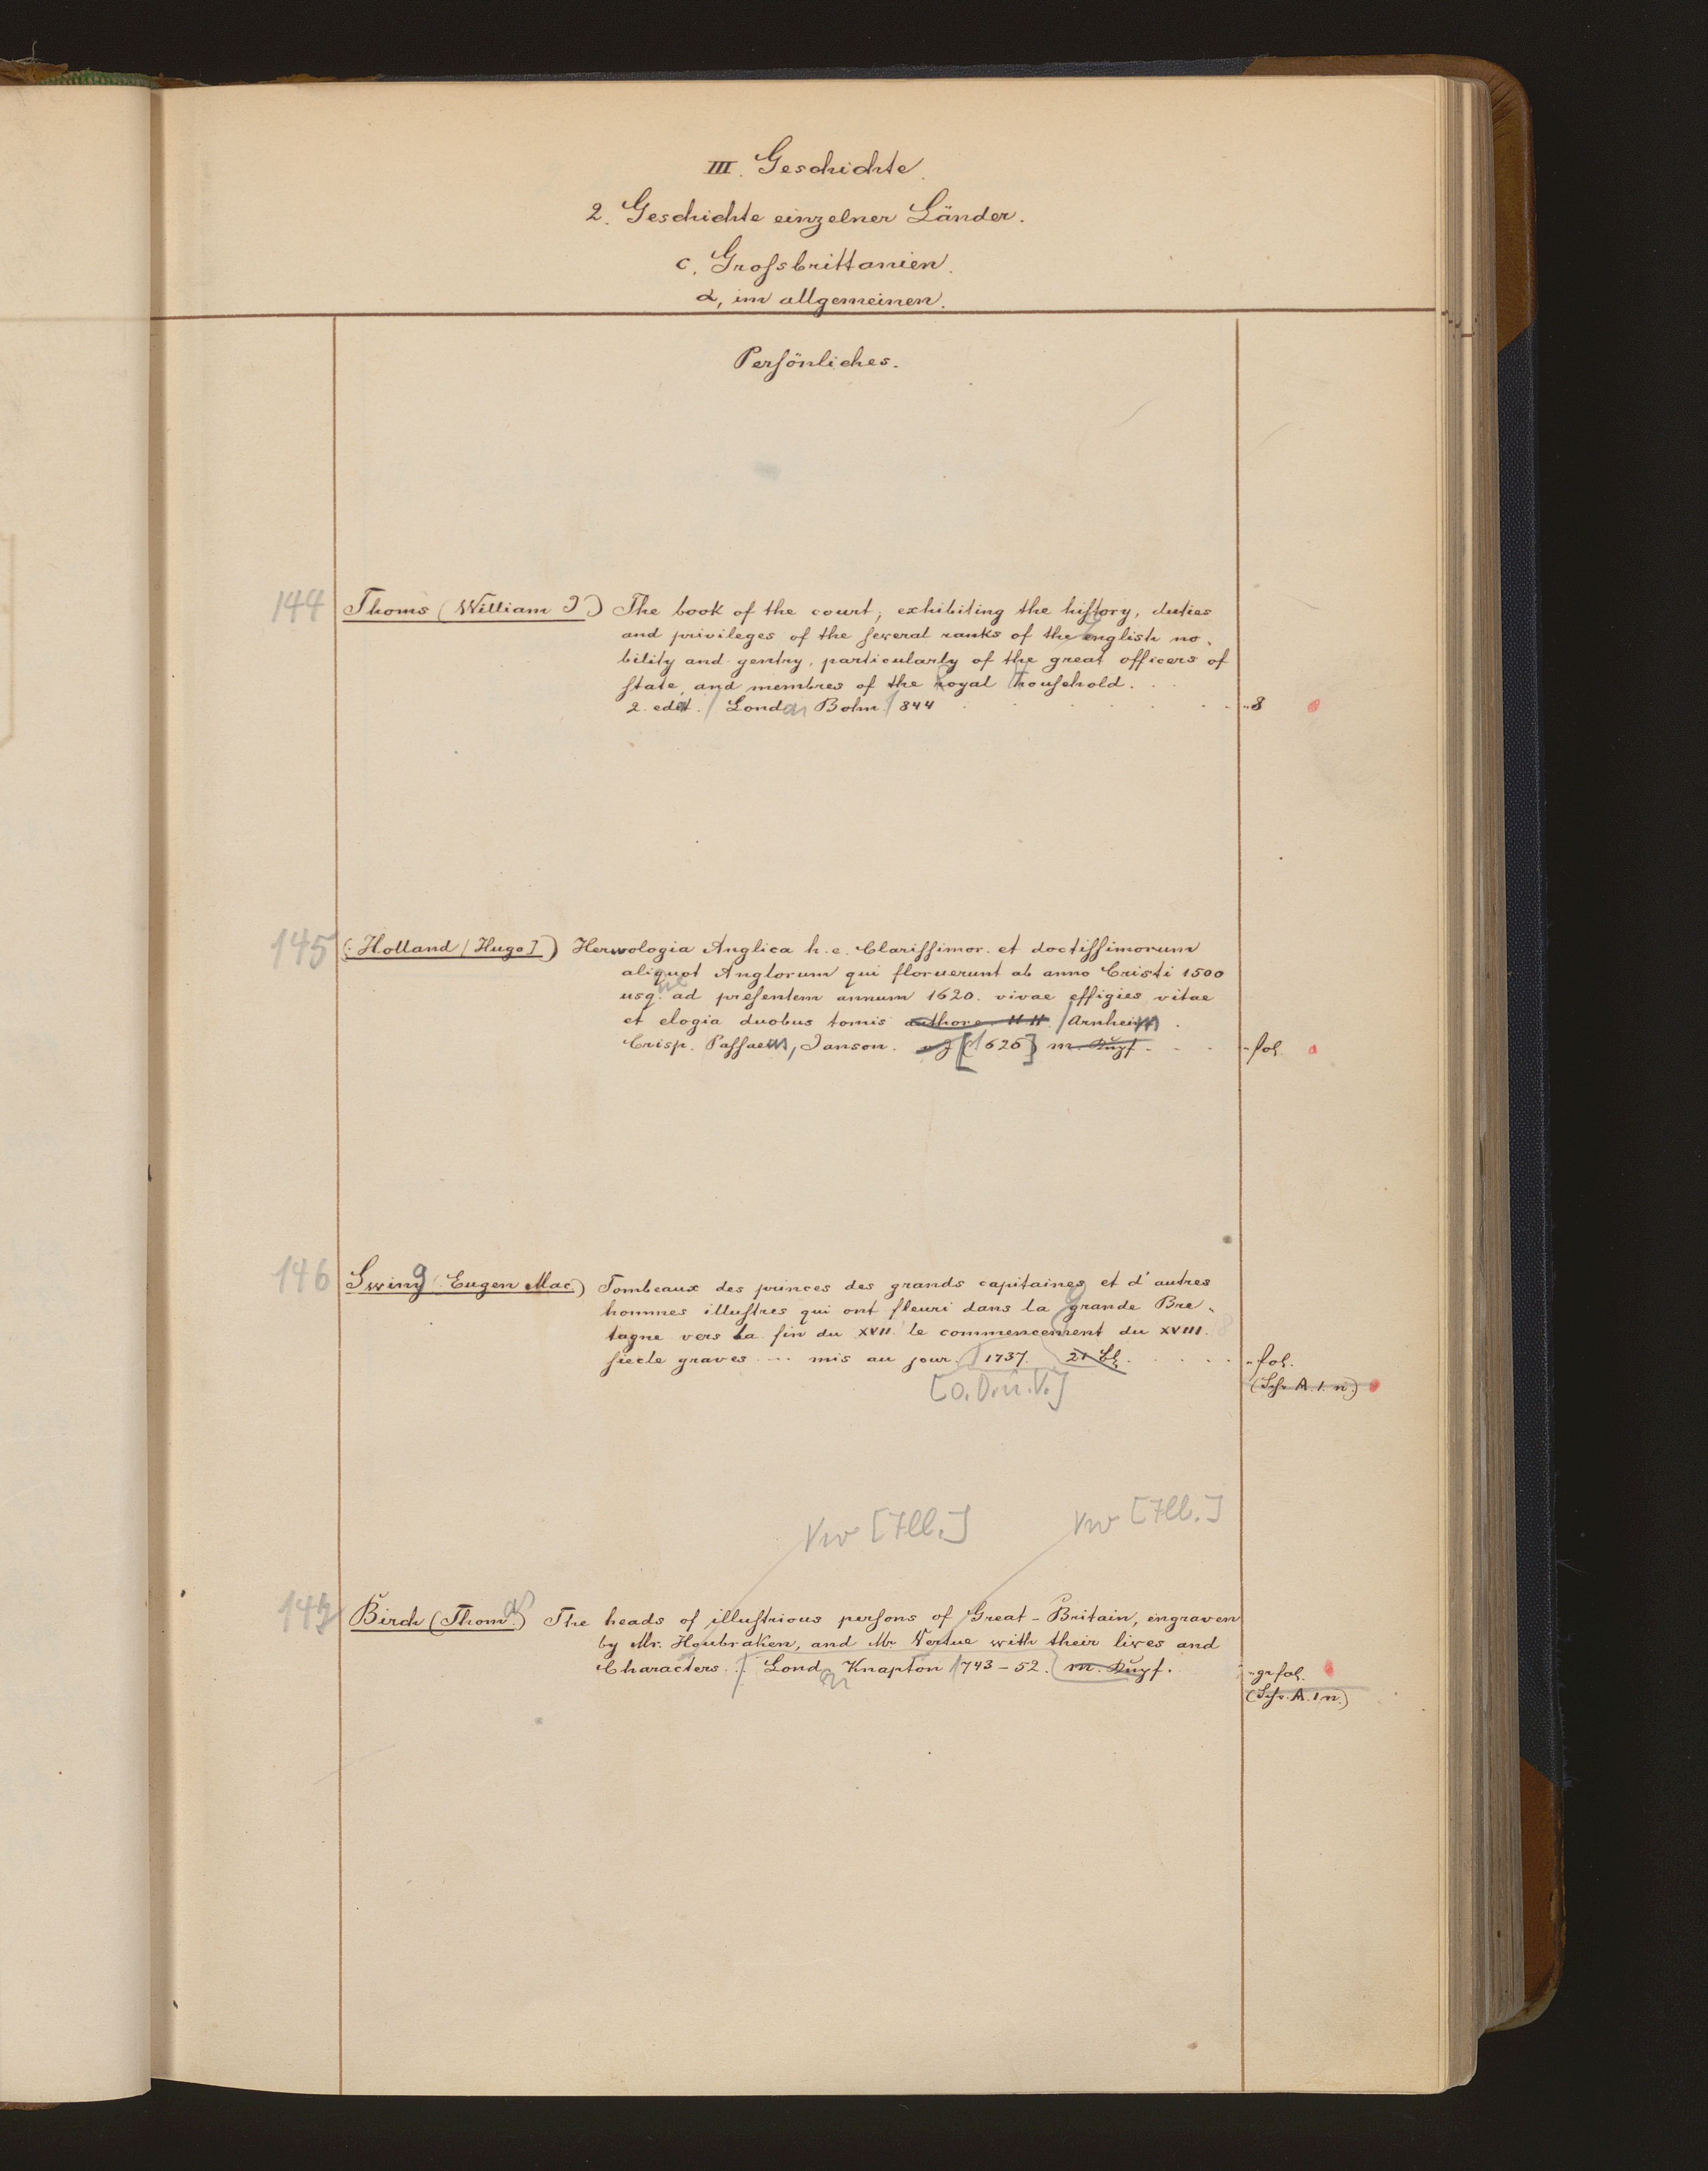 III. Geschichte.
2. Geschichte einzelner Länder.
c. Grossbrittanien.
α, im allgemeinen.
Persönliches.
144 Thoms (William J) The book of the court; exhibiting the history, duties
and privileges of the several ranks of the english no-
bility and gentry, particularly of the great officers of
state, and membres of the royal household. . .
2. edit. / London Bohn. / 844 8
145 (: Holland [Hugo]) Herwologia Anglica h. e. Clarissimor. et doctissimorum
aliquot Anglorum qui floruerunt ab anno Cristi 1500
usq. ad presentem annum 1620. vivae effigies vitae
et elogia duobus tomis authore H H / Arnheim.
Crisp. Passaeus, Janson. [1626] m. Kupf. fol.
146 Swing (Eugen Mac) Tombeaux des princes des grands capitaines et d'autres
hommes illustres qui ont fleuri dans la grande Bre-
tagne vers la fin du XVII le commencement du XVIII.
siecle graves ... mis au jour. 1737. 21 Bl. fol.
[O. D. u. V.] (Schr. A. 1. n.)
Vw [Ill.] Vw [Ill.]
147 Birch (Thomas) The heads of illustrious persons of Great-Britain, engraven
by Mr. Houbraken, and Mr Vertue with their lives and
Characters. / London Knapton 1743-52. m. Kupf. gr fol.
(Schr. A. 1. n.)